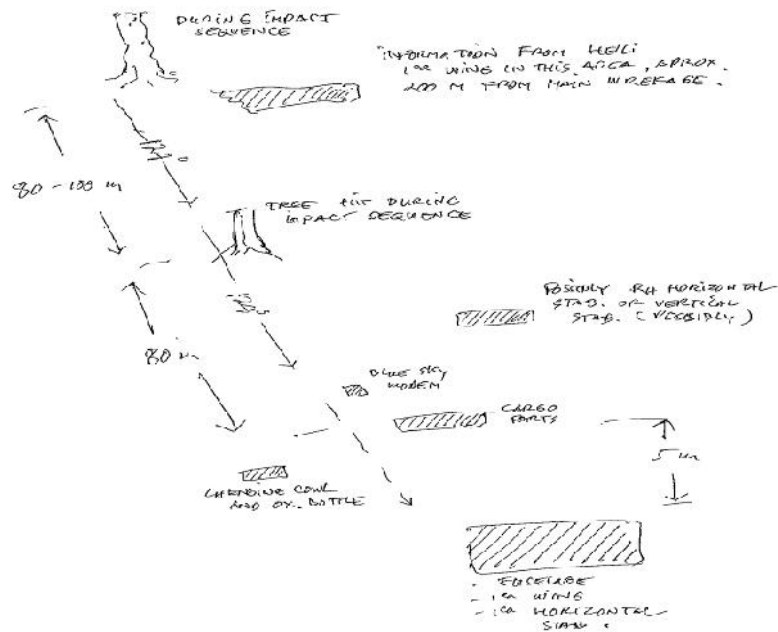 DURING IMPACT
SEQUENCE
INFORMATION FROM HELI
WING IN THIS AREA, APROX.
200 M FROM MAIN WREKAGE.
80-100 m
TREE HIT DURING
IMPACT SEQUENCE
POSIBLY RH HORIZONTAL
STAB. OF VERTICAL
STAB. (POSSIBLY)
80 m
BLUE SKY
MODEM
CARGO
PARTS
5 m
LH ENGINE COWL
AND OX. BOTTLE
- FUSELAGE
WING
HORIZONTAL